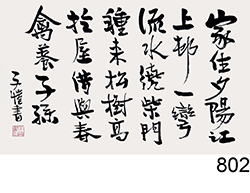 家住夕陽江
上邨一彎
流水繞柴門
種来松樹高
於屋借與春
禽養子孫
子愷書
802